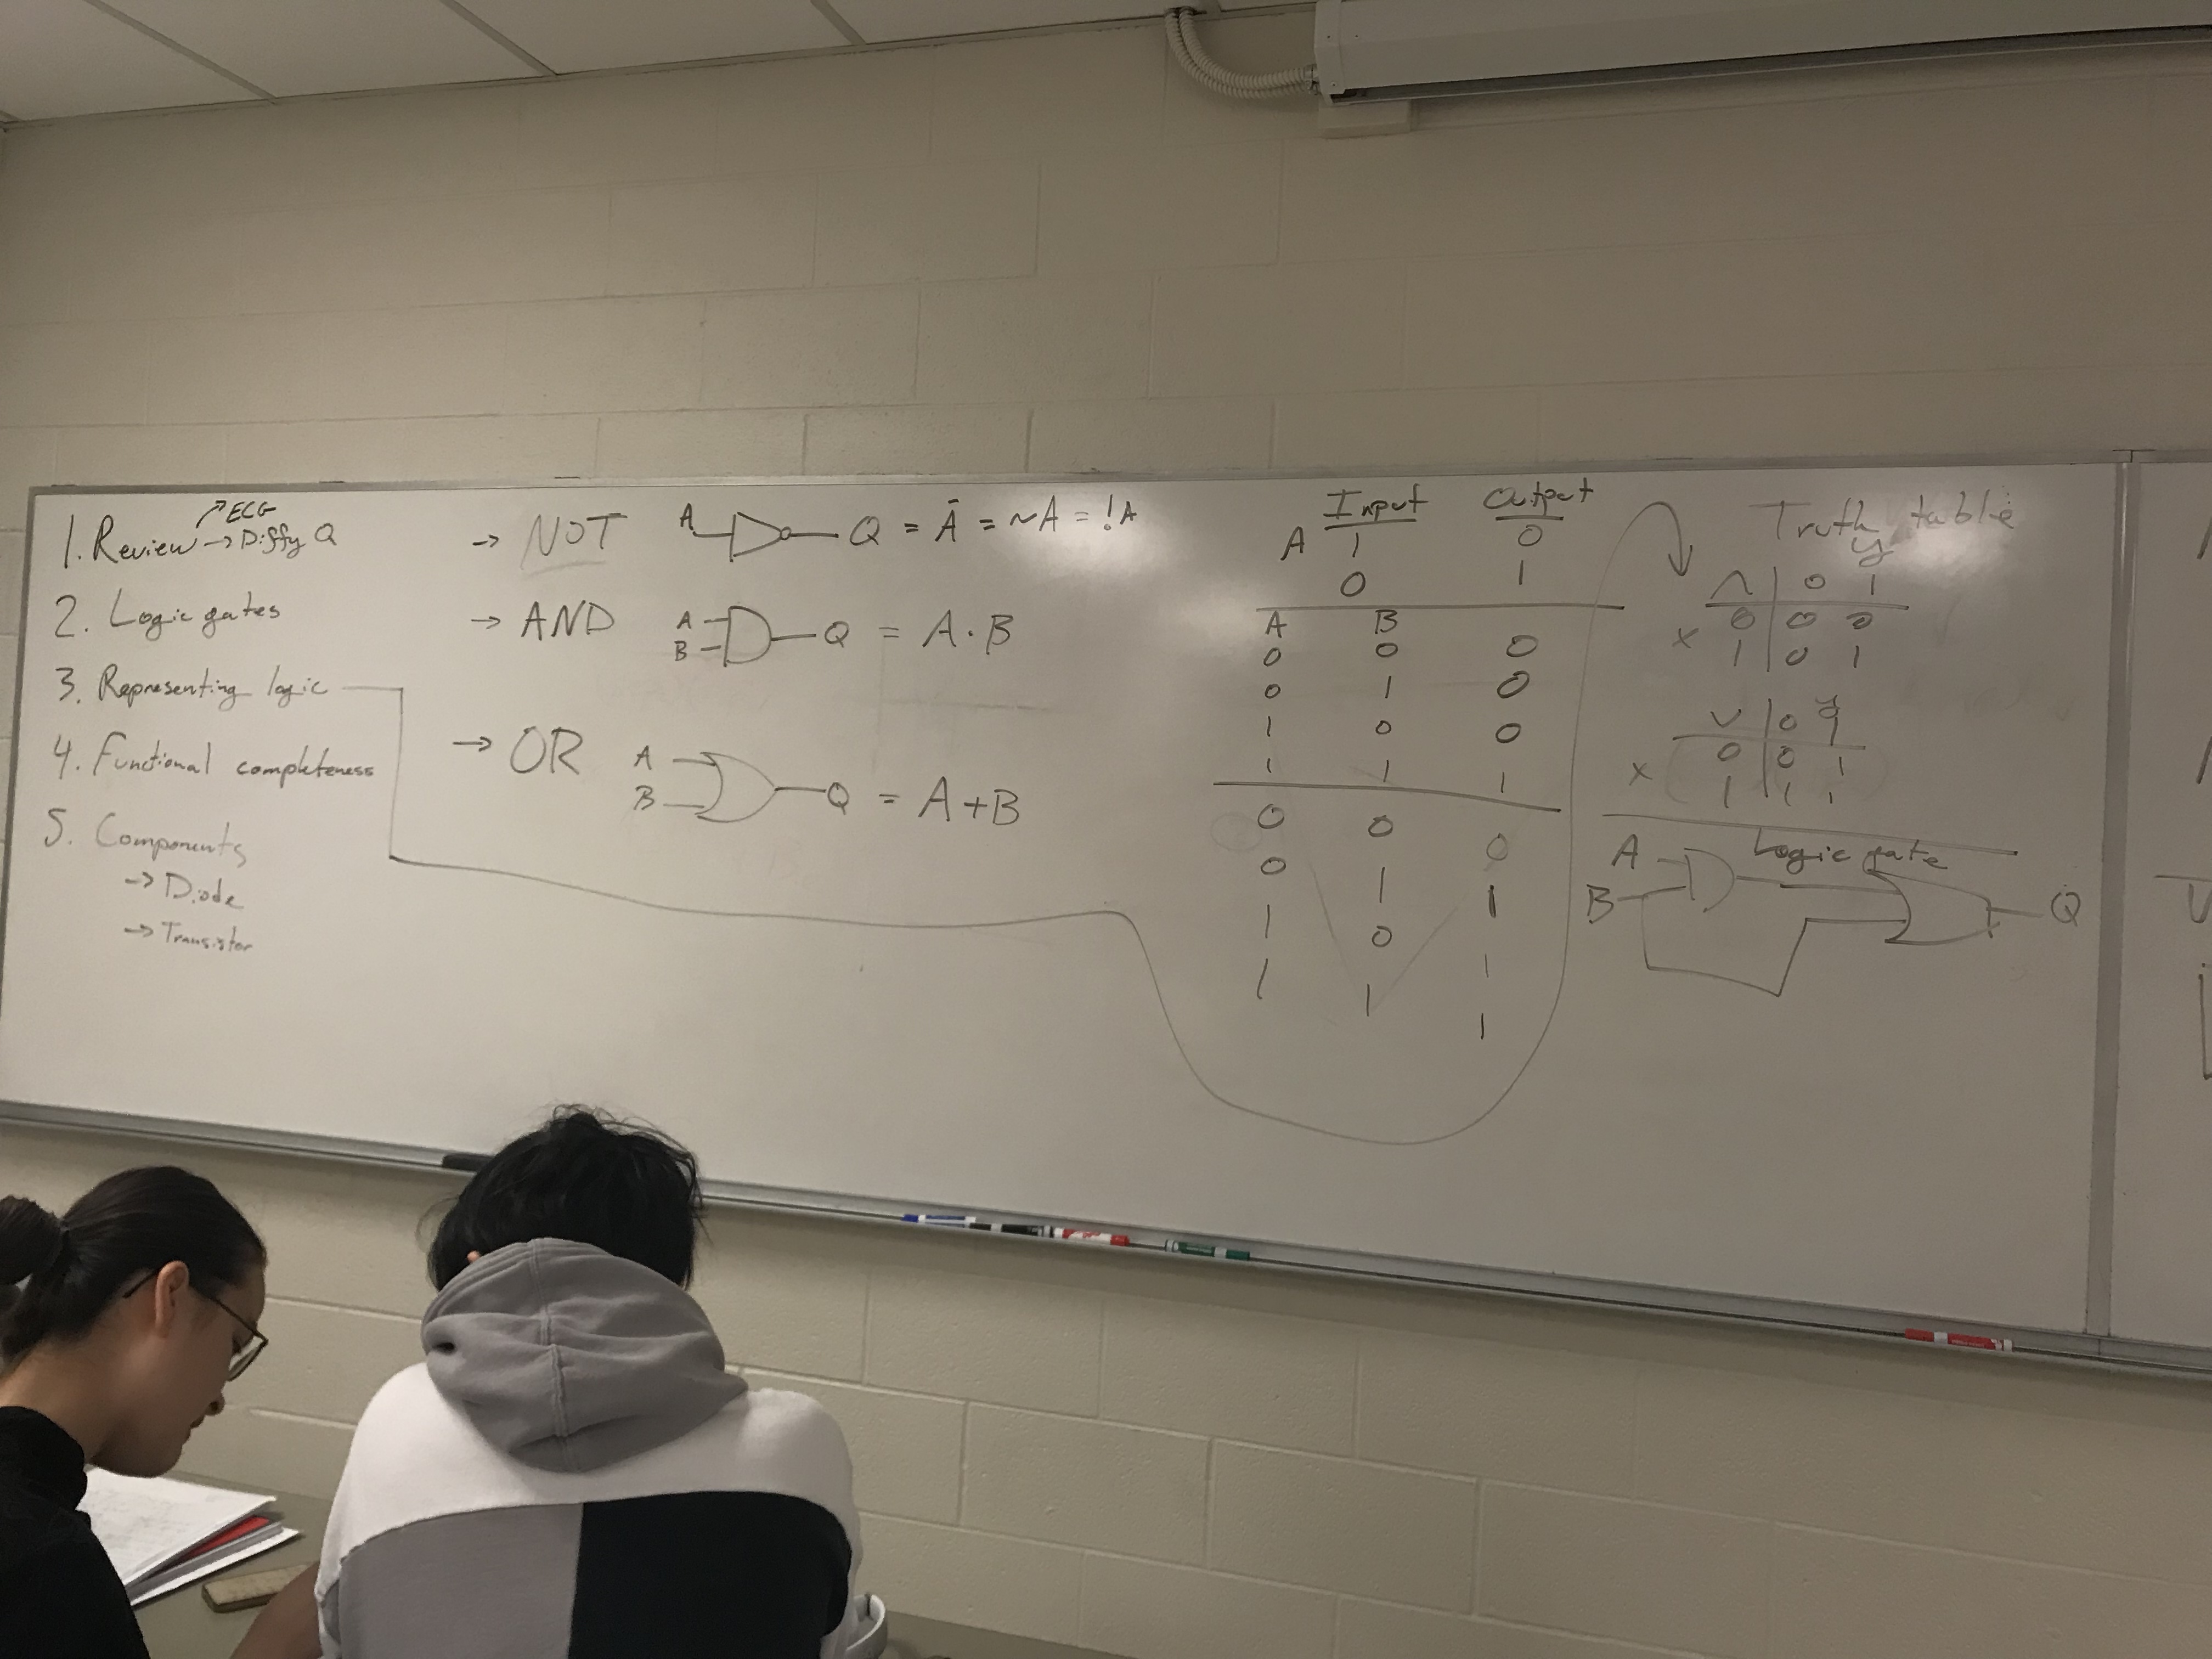 1. Review → ECG
→ Diffy Q
2. Logic gates
3. Representing logic
4. Functional completeness
5. Components
→ Diode
→ Transistor
→ NOT A Q = Ā = ~A = !A
→ AND A B Q = A · B
→ OR A B Q = A + B
Input Output
A 1 0
0 1
A B
0 0 0
0 1 0
1 0 0
1 1 1
0 0 0
0 1 1
1 0 1
1 1 1
Truth table
y
^ 0 1
x 0 0 0
1 0 1
y
v 0 1
x 0 0 1
1 1 1
Logic gate
A
B Q